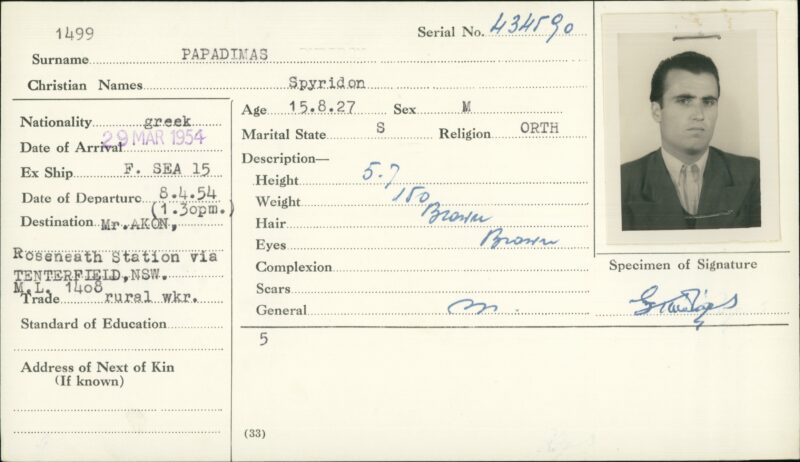 1499
Serial No. 434590
Surname PAPADIMAS
Christian Names Spyridon
Nationality greek
Date of Arrival 29 MAR 1954
Ex Ship F. SEA 15
Date of Departure 8.4.54
(1.30pm.)
Destination Mr.AKON,
Roseneath Station via
TENTERFIELD,NSW.
M.L. 1408
Trade rural wkr.
Standard of Education
Address of Next of Kin
(If known)
Age 15.8.27 Sex M
Marital State S Religion ORTH
Description—
Height 5-7
Weight 150
Hair Brown
Eyes Brown
Complexion
Scars
General
5
(33)
Specimen of Signature